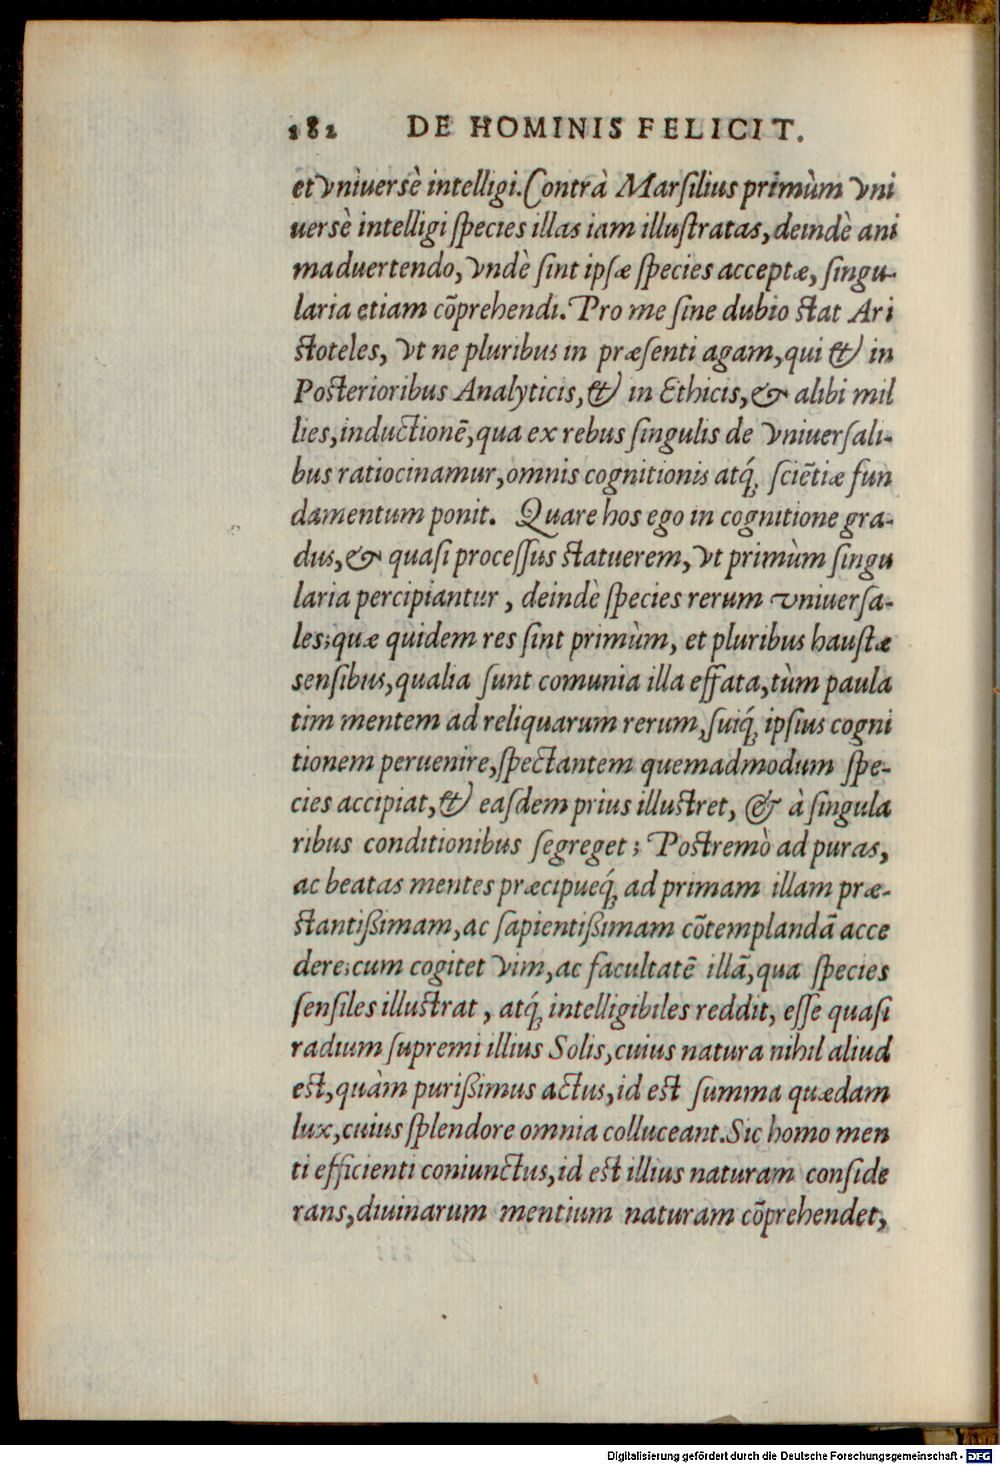 182 DE HOMINIS FELICIT.
et vniuersè intelligi. Contrà Marsilius primùm vni
uersè intelligi species illas iam illustratas, deindè ani
maduertendo, vndè sint ipsæ species acceptæ, singu-
laria etiam cõprehendi. Pro me sine dubio stat Ari
stoteles, vt ne pluribus in præsenti agam, qui & in
Posterioribus Analyticis, & in Ethicis, & alibi mil
lies, inductionẽ, qua ex rebus singulis de vniuersali-
bus ratiocinamur, omnis cognitionis atq́; sciẽtiæ fun
damentum ponit. Quare hos ego in cognitione gra-
dus, & quasi processus statuerem, vt primùm singu
laria percipiantur, deindè species rerum vniuersa-
les; quæ quidem res sint primùm, et pluribus haustæ
sensibus, qualia sunt comunia illa effata, tùm paula
tim mentem ad reliquarum rerum, suiq́; ipsius cogni
tionem peruenire, spectantem quemadmodum spe-
cies accipiat, & easdem prius illustret, & à singula
ribus conditionibus segreget; Postremò ad puras,
ac beatas mentes præcipueq́; ad primam illam præ-
stantißimam, ac sapientißimam cõtemplandã acce
dere; cum cogitet vim, ac facultatẽ illã, qua species
sensiles illustrat, atq́; intelligibiles reddit, esse quasi
radium supremi illius Solis, cuius natura nihil aliud
est, quàm purißimus actus, id est summa quædam
lux, cuius splendore omnia colluceant. Sic homo men
ti efficienti coniunctus, id est illius naturam conside
rans, diuinarum mentium naturam cõprehendet,
Digitalisierung gefördert durch die Deutsche Forschungsgemeinschaft - DFG